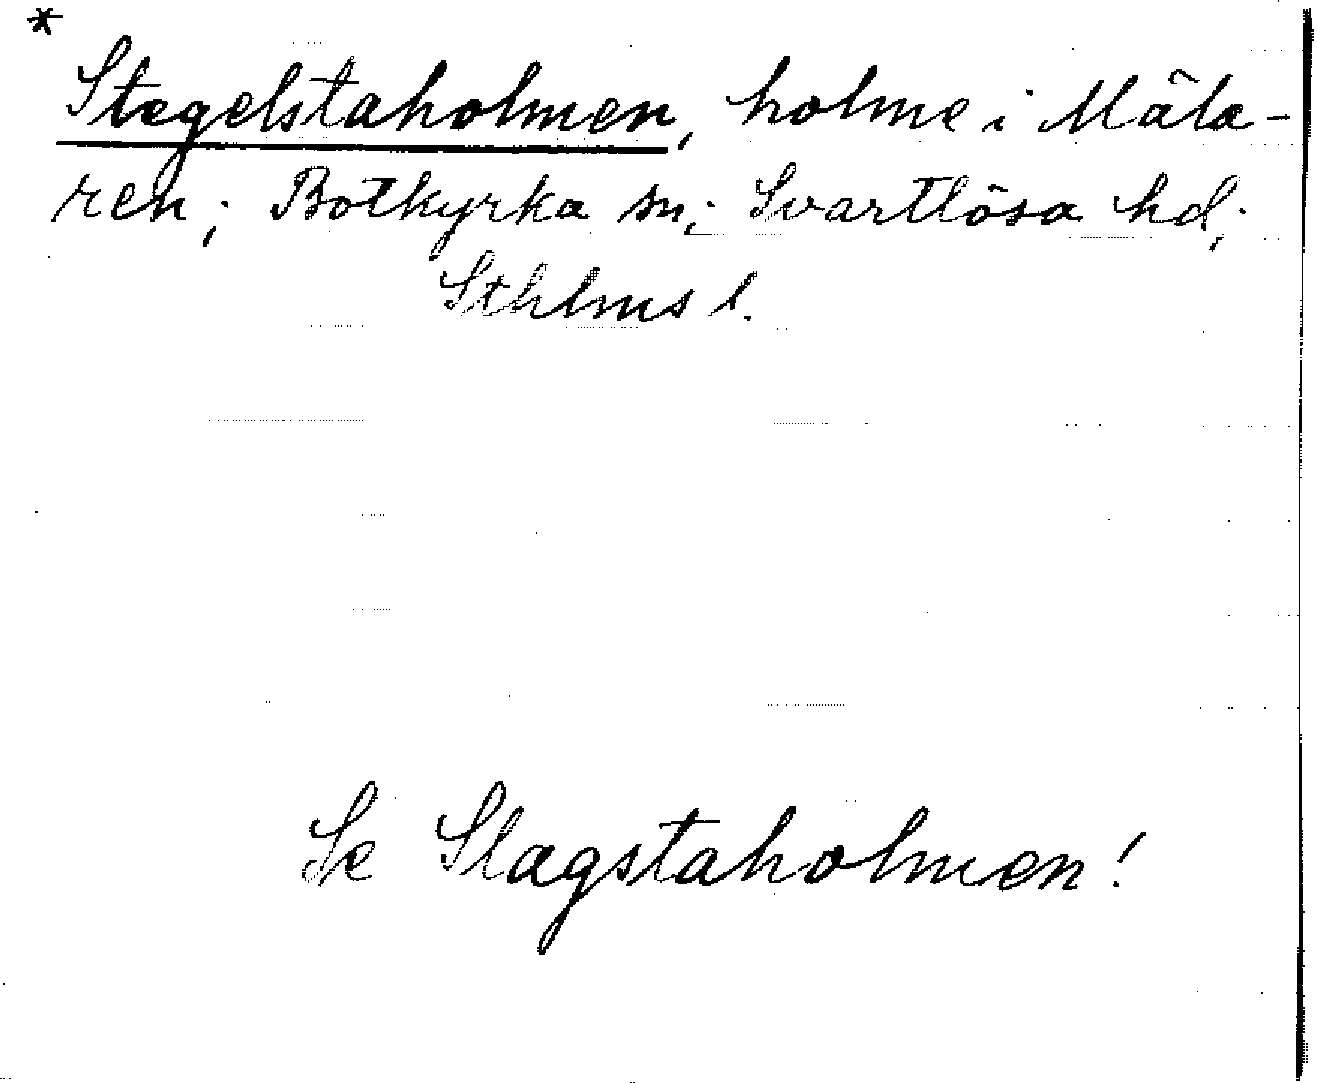 *
Stegelstaholmen, holme i Mäla-
ren; Botkyrka sn; Svartlösa hd;
Sthlms l.
Se Slagstaholmen!